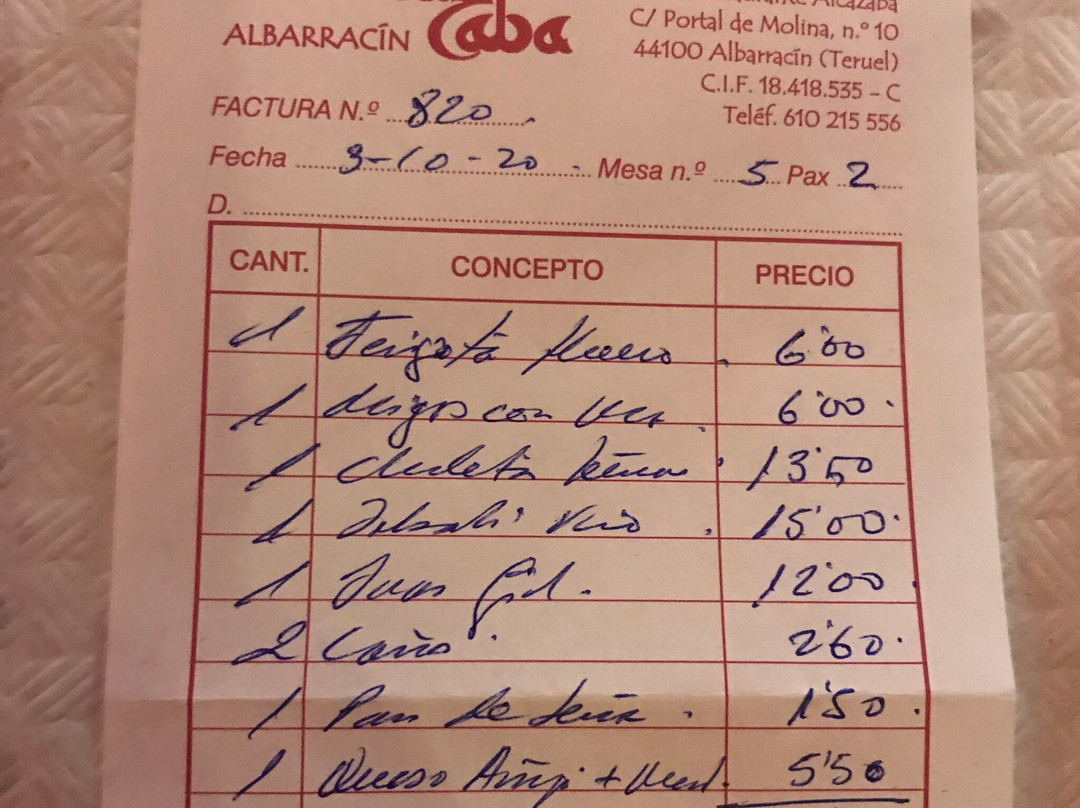 Alcazaba
ALBARRACÍN Caba
C/ Portal de Molina, n.º 10
44100 Albarracín (Teruel)
C.I.F. 18.418.535 - C
Teléf. 610 215 556
FACTURA N.º 820
Fecha 3-10-20 Mesa n.º 5 Pax 2
D.
CANT. CONCEPTO PRECIO
1 6'00
1 con 6'00
1 Chuleta 13'50
1 15'00
1 Juan Gil. 12'00
2 Caña 2'60
1 Pan de leña 1'50
1 Queso + 5'50